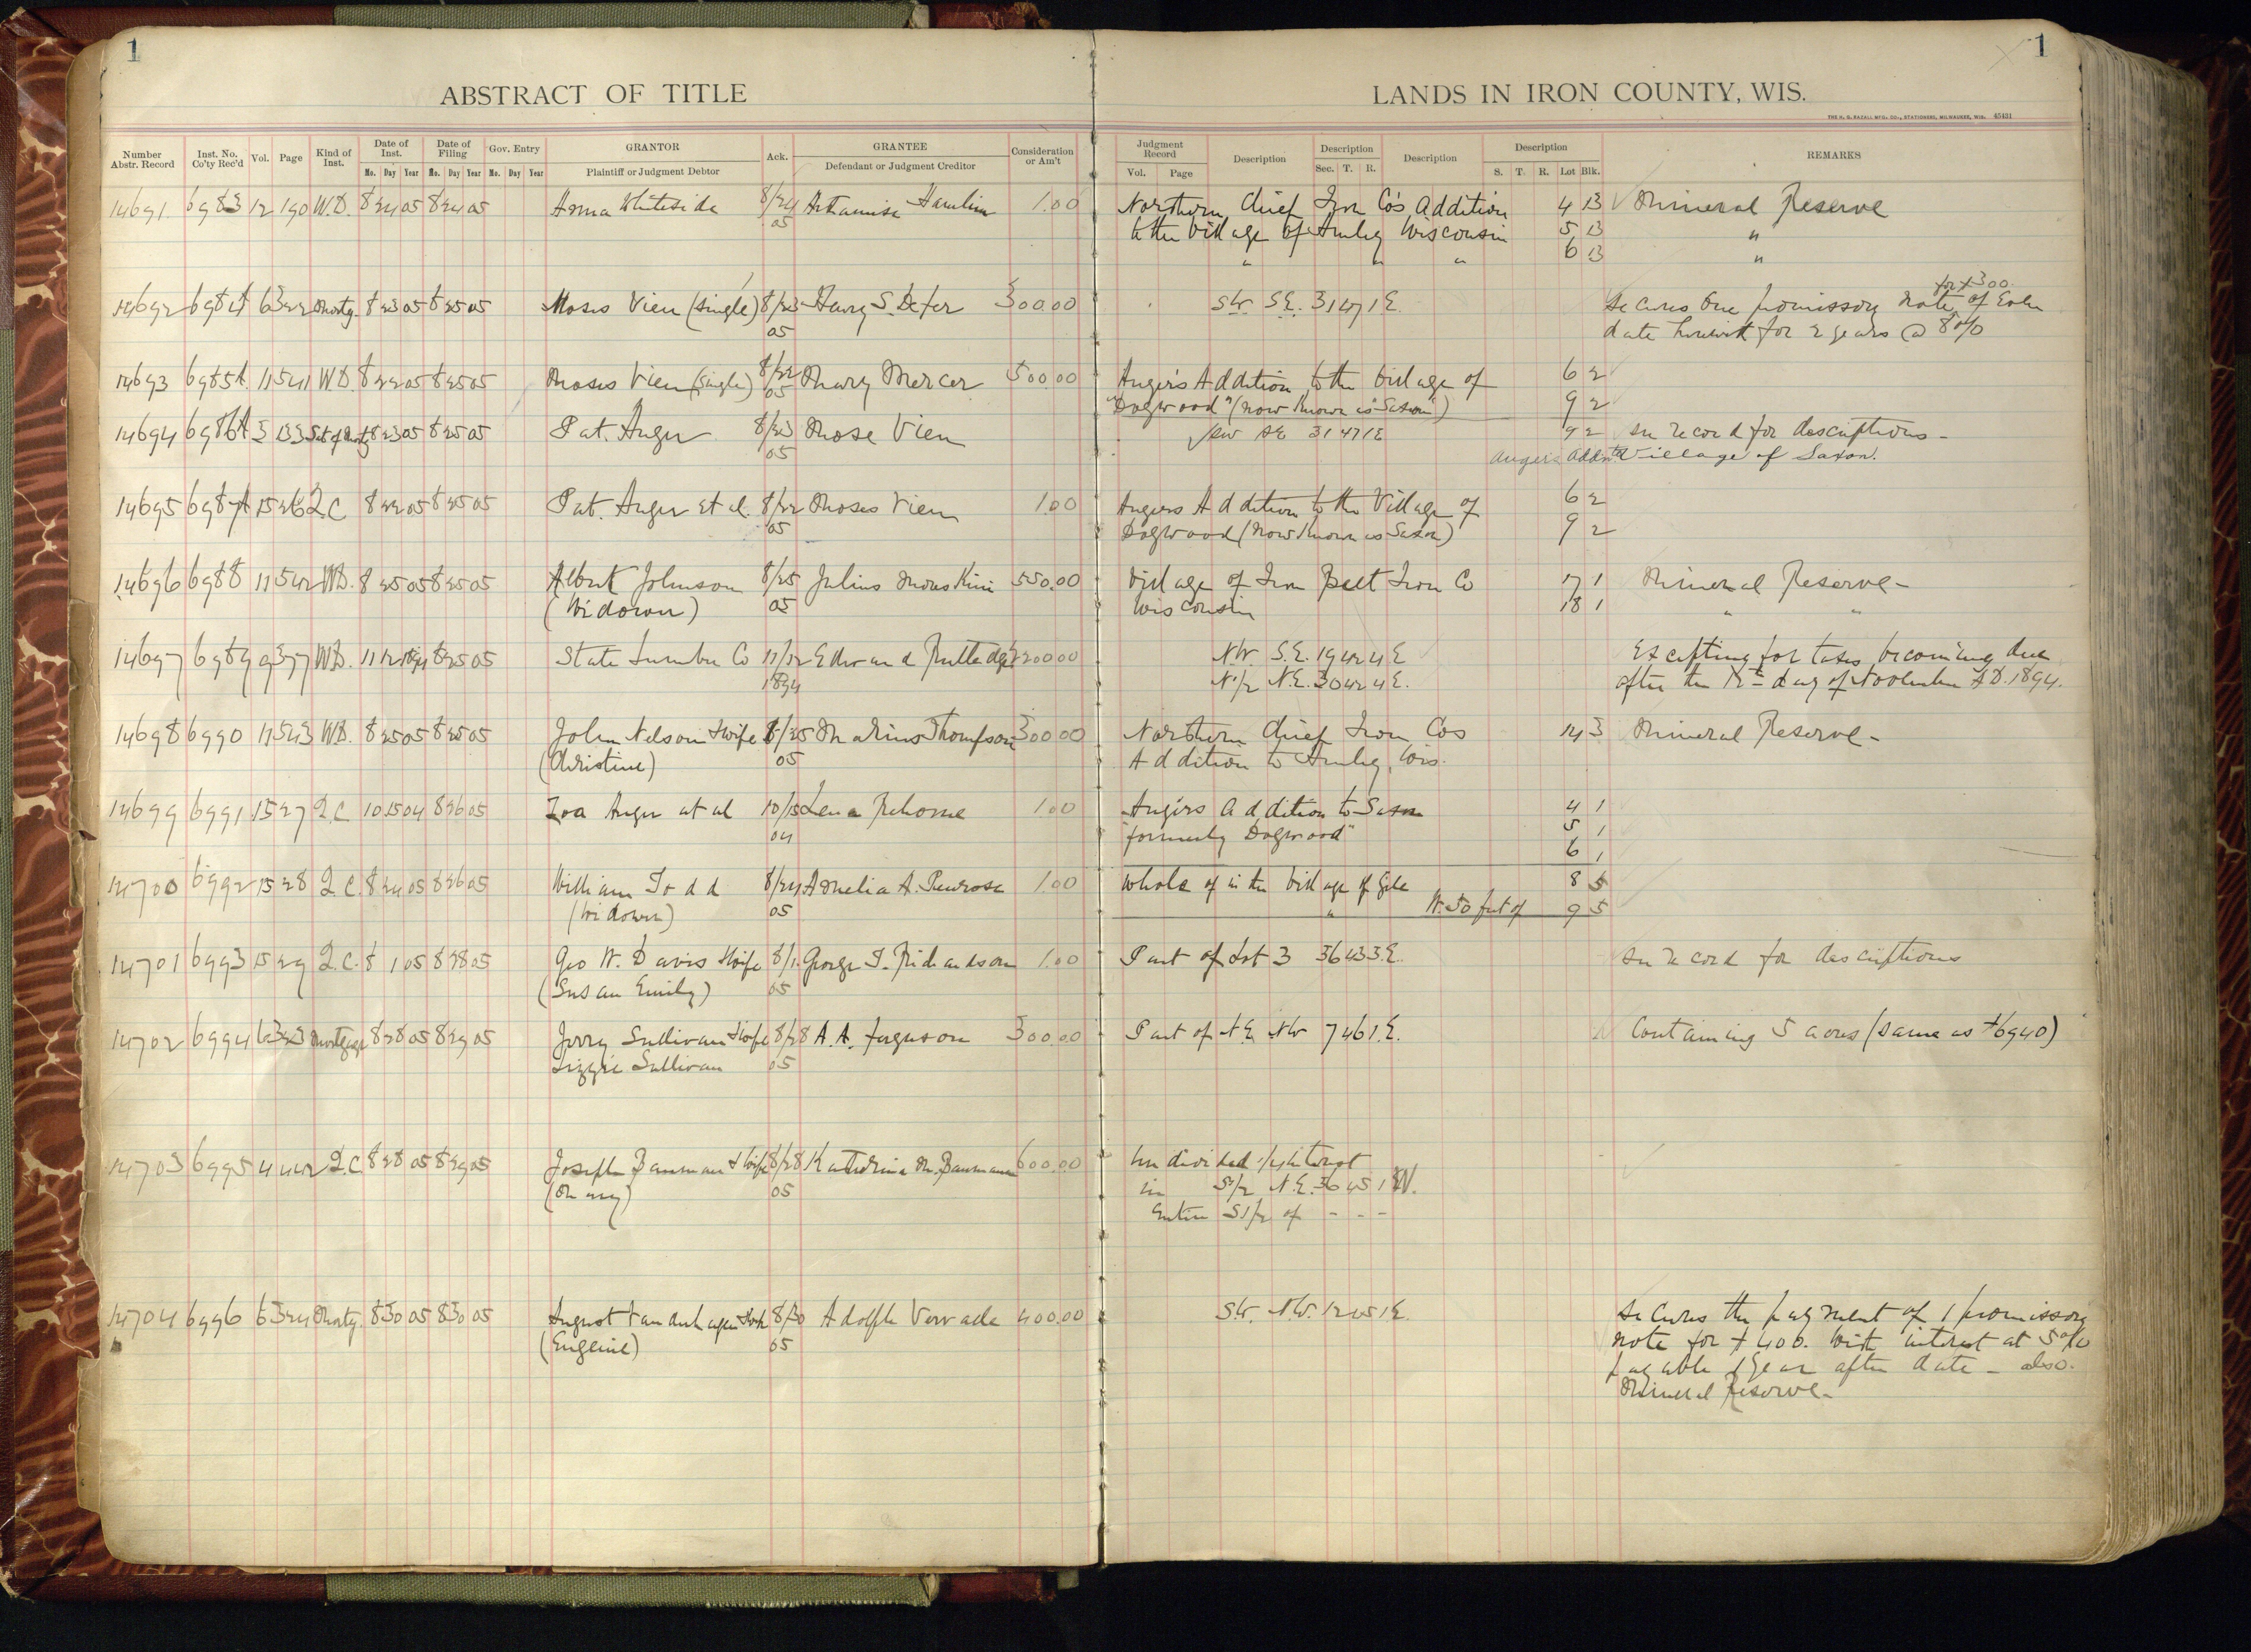 1
1
ABSTRACT OF TITLE
LANDS IN IRON COUNTY, WIS.
THE H. G. RAZALL MFG. CO., STATIONERS, MILWAUKEE, WIS. 45431
Number Abstr. Record Inst. No. Co'ty Rec'd Vol. Page Kind of Inst. Date of Inst. Mo. Day Year Date of Filing Mo. Day Year Gov. Entry Mo. Day Year GRANTOR Plaintiff or Judgment Debtor Ack. GRANTEE Defendant or Judgment Creditor Consideration or Am't
Judgment Record Vol. Page Description Description Sec. T. R. Description Description S. T. R. Lot Blk. REMARKS
14691 6983 12 190 W.D. 8 24 05 8 24 05 Anna Whiteside 8/24 Artamisa Hamlin 1.00 Northern Chief Iron Co's Addition 4 13 Mineral Reserve
05 to the Village of Hurley Wisconsin 5 13 "
" " " 6 13 "
for $300.
14692 6984 6 322 Mortg. 8 23 05 8 25 05 Moses Vien (single) 8/23 Henry S. 300.00 SW. S.E. 31 47 1 E. Secures One promissory note of Even
05 date herewith for 2 years @ 8%
14693 6985A 11 541 W.D. 8 22 05 8 25 05 Moses Vien (single) 8/22 Mary Mercer 500.00 Anger's Addition to the Village of 6 2
05 "Dogwood" (now known as "Saxon") 9 2
14694 6986A 5 133 Sat of Mortg 8 23 05 8 25 05 Pat. Anger 8/23 Mose Vien SW SE 31 47 1 E 9 2 See record for descriptions -
05 Angers Addn to Village of Saxon.
14695 6987A 15 26 Q.C 8 22 05 8 25 05 Pat. Anger et al. 8/22 Moses Vien 1.00 Angers Addition to the Village of 6 2
05 Dogwood (now known as Saxon) 9 2
14696 6988 11 542 W.D. 8 25 05 8 25 05 Albert Johnson 8/25 Julius 550.00 Village of Iron Belt Iron Co 17 1 Mineral Reserve -
(Widower) 05 Wisconsin 18 1 " "
14697 6989 9 377 W.D. 11 12 1894 8 25 05 State Lumber Co 11/12 Edward Rutledge NW. S.E. 19 42 4 E Excepting for taxes becoming due
1894 N 1/2 N.E. 30 42 4 E. after the 12th day of November A.D. 1894.
14698 6990 11 543 W.D. 8 25 05 8 25 05 John Nelson & wife 8/25 Marius Thompson 300.00 Northern Chief Iron Cos 14 3 Mineral Reserve -
(Christine) 05 Addition to Hurley, Wis.
14699 6991 15 27 Q.C 10 15 04 8 26 05 Zoa Anger et al 10/15 Lena 1.00 Angers Addition to Saxon 4 1
04 "formerly Dogwood" 5 1
6 1
14700 6992 15 28 Q.C. 8 24 05 8 26 05 William Todd 8/24 Amelia A. Penrose 1.00 Whole of in the Village of Gile 8 5
(Widower) 05 " W. 50 feet of 9 5
14701 6993 15 29 Q.C. 8 1 05 8 28 05 Geo W. Davis & wife 8/1 George T. Richardson 1.00 Part of Lot 3 36 43 3 E. See record for descriptions
(Susan Emily) 05
14702 6994 6 323 Mortgage 8 28 05 8 29 05 Jerry Sullivan & wife 8/28 A. A. Ferguson 300.00 Part of N.E. NW 7 46 1 E. Containing 5 acres (same as #6940)
Lizzie Sullivan 05
14703 6995 4 442 Q.C 8 28 05 8 29 05 Joseph Bauman & wife 8/28 Katherina M. Bauman 600.00 Undivided interest
(Mary) 05 in S 1/2 N.E. 36 45 1 W.
Entire S 1/2 of - - -
14704 6996 6 324 Mortg. 8 30 05 8 30 05 August & wife 8/30 Adolph 400.00 S.W. N.W. 1 E. Secures the payment of 1 promissory
(Eugenie) 05 note for $400. with interest at 5%
payable 1 year after date - also.
Mineral Reserve -